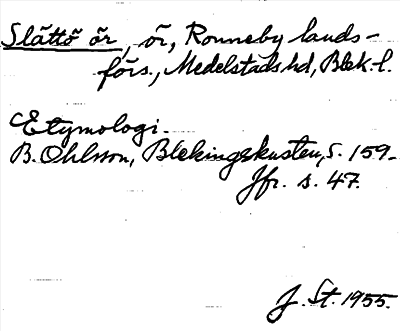 Slättö ör, ör, Ronneby lands-
förs., Medelstads hd, Blek. l.
Etymologi.
B. Ohlsson, Blekingekusten, s. 159.
Jfr. s. 47.
J. St. 1955.